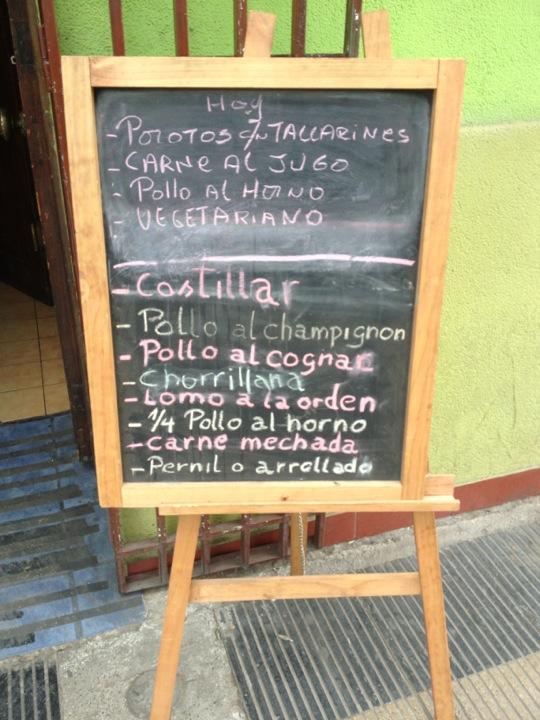 Hoy
- POROTOS C/N TALLARINES
- CARNE AL JUGO
- Pollo AL HORNO
- VEGETARIANO
- Costillar
- Pollo al champignon
- Pollo al cognac
- Chorrillana
- Lomo a la orden
- 1/4 Pollo al horno
- Carne mechada
- Pernil o arrollado